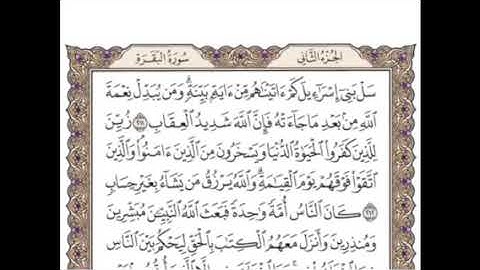 الجُزْءُ الثَّانِى سُورَةُ البَقَرَةِ
سَلْ بَنِىٓ إِسْرَٰٓءِيلَ كَمْ ءَاتَيْنَٰهُم مِّنْ ءَايَةٍۭ بَيِّنَةٍۗ وَمَن يُبَدِّلْ نِعْمَةَ
ٱللَّهِ مِنۢ بَعْدِ مَا جَآءَتْهُ فَإِنَّ ٱللَّهَ شَدِيدُ ٱلْعِقَابِ ٢١١ زُيِّنَ
لِلَّذِينَ كَفَرُوا۟ ٱلْحَيَوٰةُ ٱلدُّنْيَا وَيَسْخَرُونَ مِنَ ٱلَّذِينَ ءَامَنُوا۟ۘ وَٱلَّذِينَ
ٱتَّقَوْا۟ فَوْقَهُمْ يَوْمَ ٱلْقِيَٰمَةِۗ وَٱللَّهُ يَرْزُقُ مَن يَشَآءُ بِغَيْرِ حِسَابٍ
٢١٢ كَانَ ٱلنَّاسُ أُمَّةً وَٰحِدَةً فَبَعَثَ ٱللَّهُ ٱلنَّبِيِّۦنَ مُبَشِّرِينَ
وَمُنذِرِينَ وَأَنزَلَ مَعَهُمُ ٱلْكِتَٰبَ بِٱلْحَقِّ لِيَحْكُمَ بَيْنَ ٱلنَّاسِ